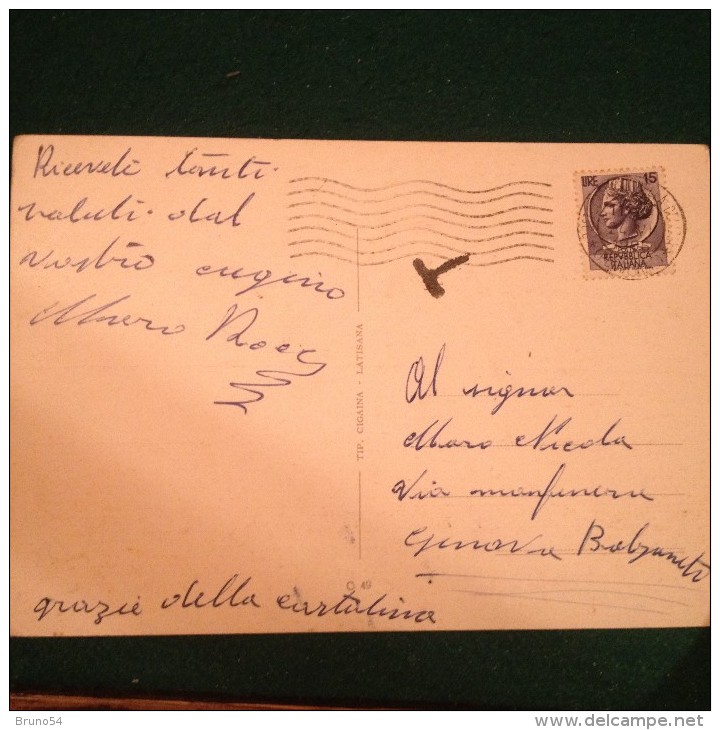 Ricevete tanti
saluti dal
vostro cugino
LIRE 15
REPVBBLICA
ITALIANA
TIP. CIGAINA - LATISANA
Al signor
Moro Nicola
Via
Genova Bolzaneto
O 49
grazie della cartolina
Bruno54
delcampe.net